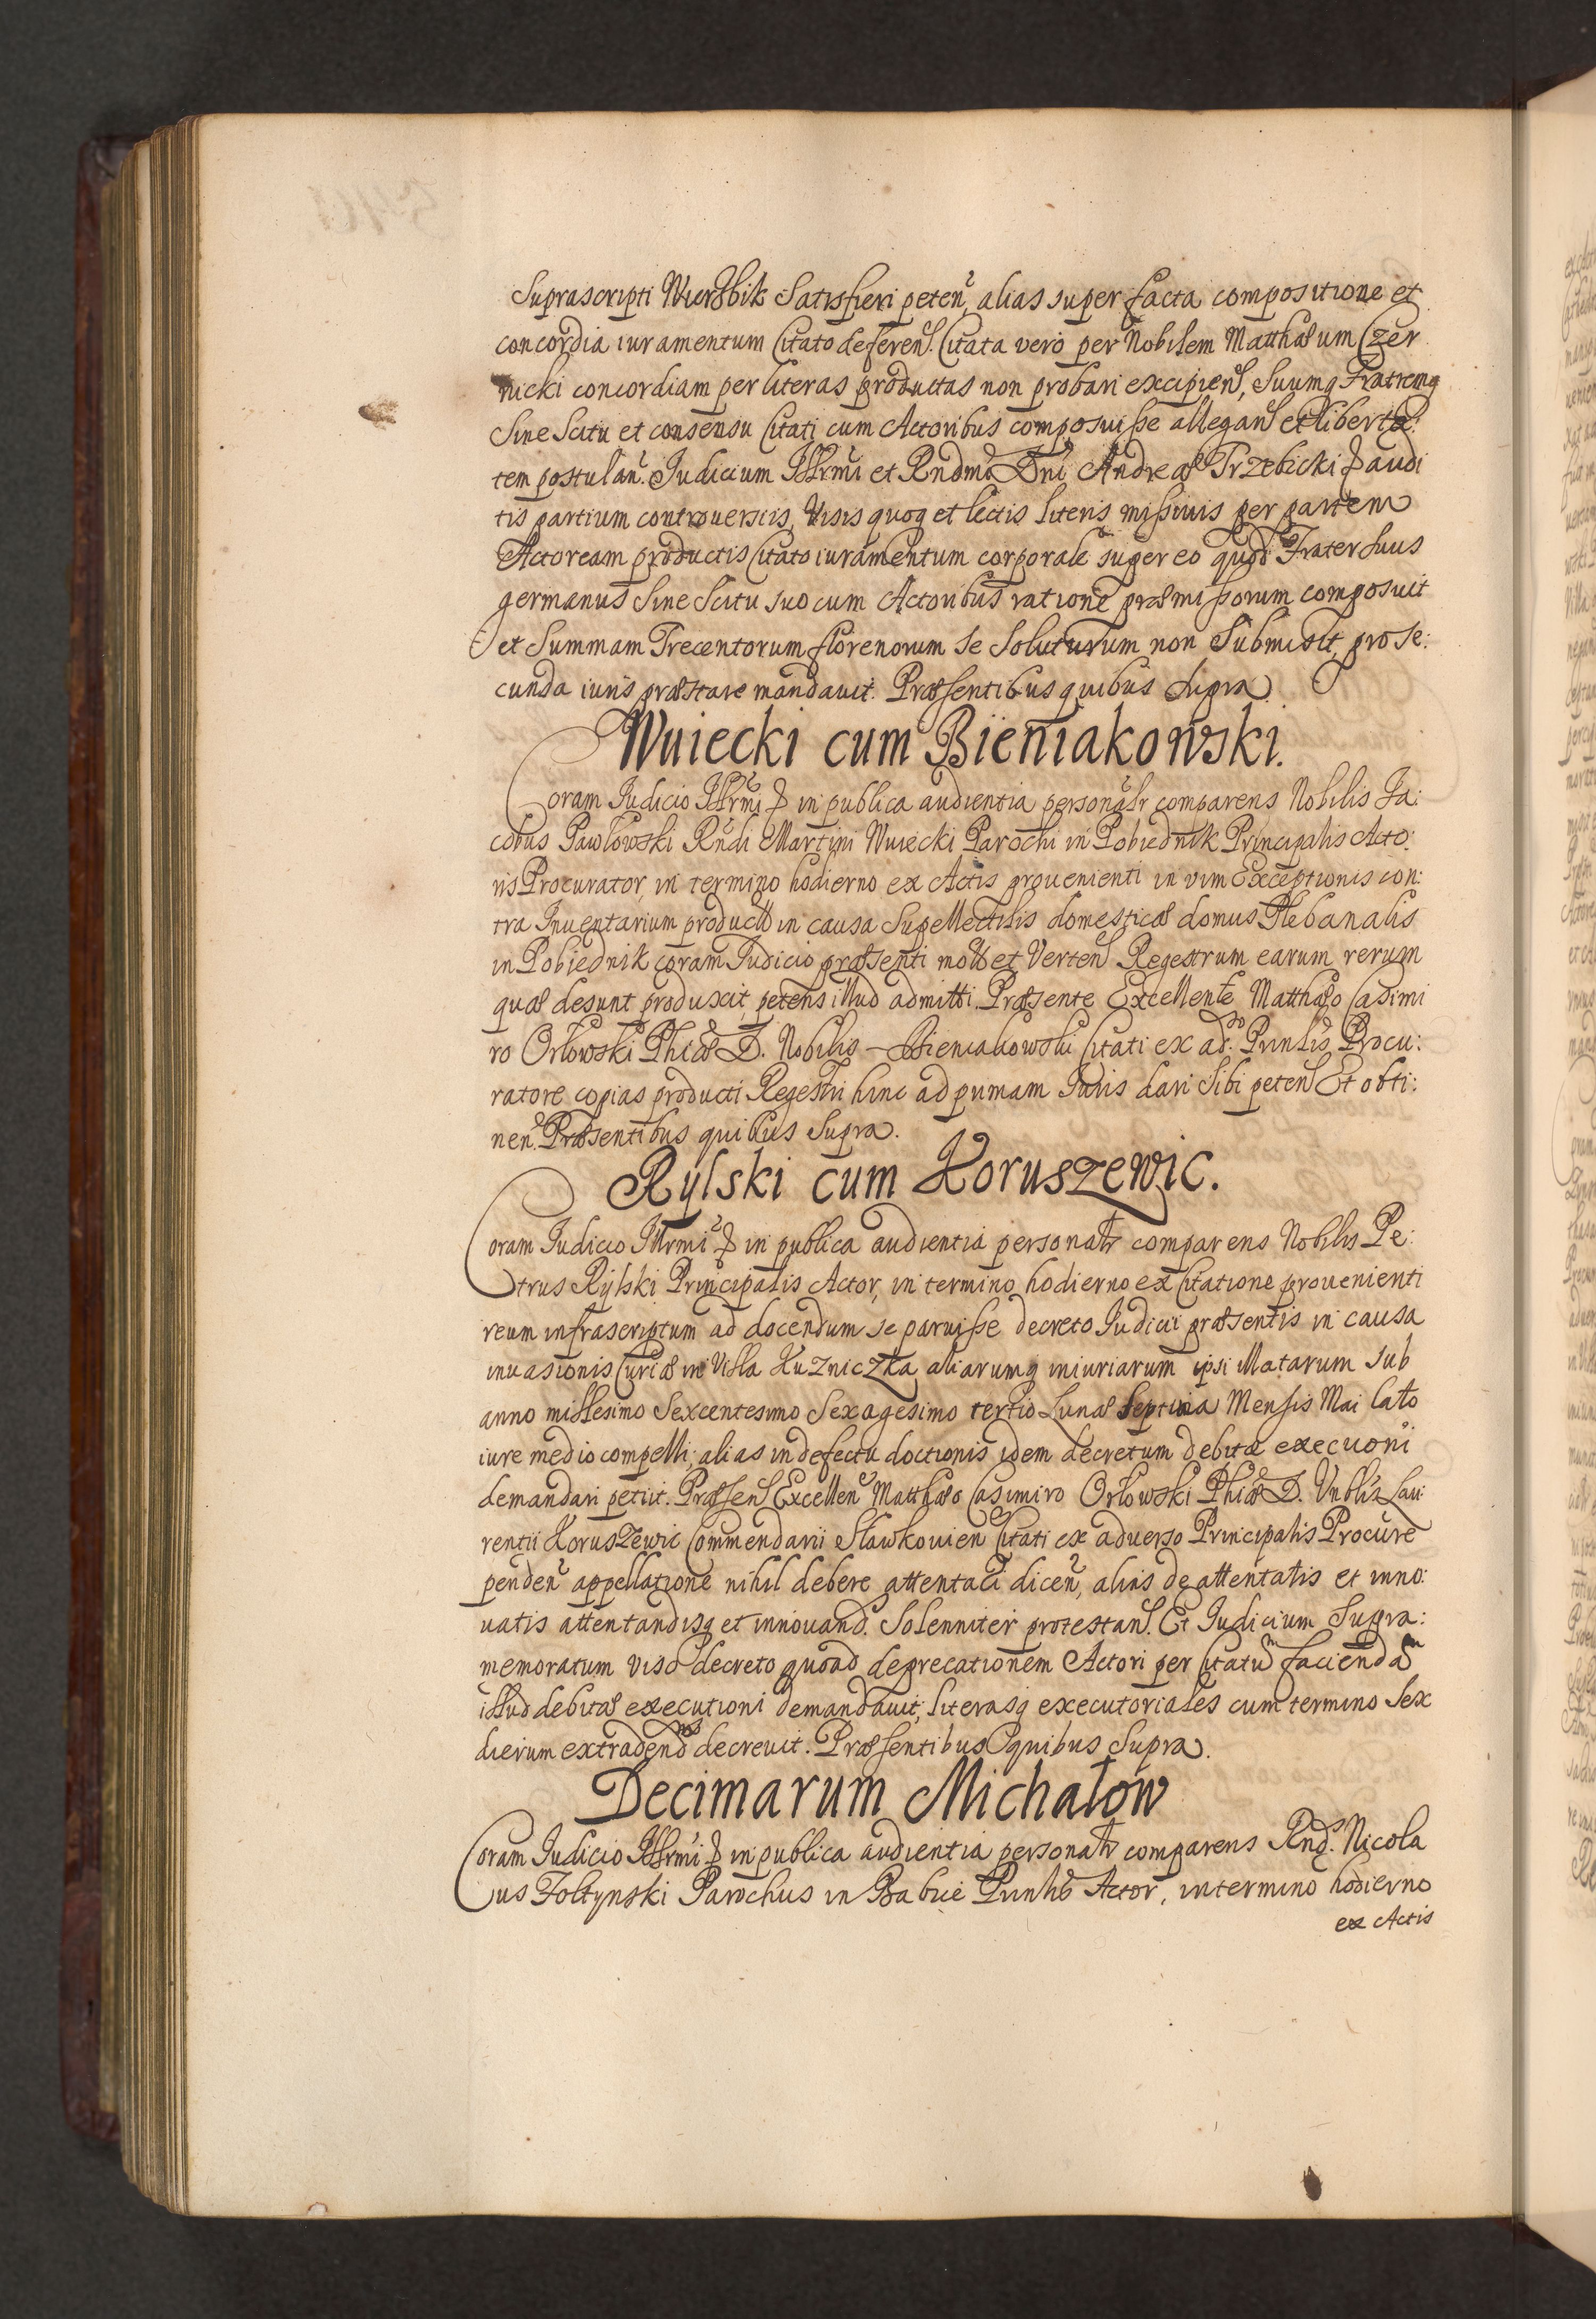 Suprascripti Wierzbik Satisfieri peten, alias super facta compositione et
concordia iuramentum Citato deferens. Citata vero per Nobilem Matthæum Czer
nicki concordiam per literas productas non probari excipiens, Suumq Fratremq
Sine Scitu et consensu Citati cum Actoribus composuisse allegans et liberta:
tem postulan. Judicium Illrmi et Rndmi Dni Andreæ Trzebicki & audi
tis partium controuersiis, Visis quoq et lectis literis missiuis per partem
Actoream productis Citato iuramentum corporale super eo quod Frater suus
germanus Sine Scitu suo cum Actoribus ratione præmissorum composuit
et Summam Trecentorum florenorum se Soluturum non Submisit, pro se:
cunda iuris præstare mandauit. Præsentibus quibus Supra.
Wuiecki cum Bieniakowski.
Coram Judicio Illrmi & in publica audientia personalr comparens Nobilis Ja:
cobus Pawłowski Rndi Martini Wuiecki Parochi in Pobiednik Principalis Acto:
ris Procurator, in termino hodierno ex Actis prouenienti in vim Exceptionis con:
tra Inuentarium product in causa Supellectilis domesticæ domus Plebanalis
in Pobiednik coram Judicio præsenti mot et Verten Regestrum earum rerum
quæ desunt produxit, petens illud admitti. Præsente Excellente Matthæo Casimi
ro Orłowski Phiæ D. Nobilis – Bieniakowski Citati ex ad.so Prinlis Procu:
ratore copias producti Regestri hinc ad primam Juris dari Sibi peten Et obti:
nen. Præsentibus quibus Supra.
Rylski cum Koruszewic.
Coram Judicio Illrmi & in publica audientia personalr comparens Nobilis Pe:
trus Rylski Principalis Actor, in termino hodierno ex Citatione prouenienti
reum infrascriptum ad docendum se paruisse decreto Judicii præsentis in causa
inuasionis Curiæ in Villa Kuzniczka aliarumq iniuriarum ipsi illatarum sub
anno millesimo Sexcentesimo Sexagesimo tertio Lunæ Septima Mensis Mai lato
iure medio compelli; alias in defectu doctionis idem decretum debitæ execuoni
demandari petiit. Præsen Excellen Matthæo Casimiro Orłowski Phiæ D. Vnblis Lau
rentii Koruszewic Commendarii Sławkouien Citati ex aduerso Principalis Procure
penden appellatione nihil debere attentari dicen, alias de attentatis et inno:
uatis attentandisq et innouand. Solenniter protestans. Et Judicium Supra:
memoratum viso decreto quoad deprecationem Actori per Citatum faciendam
illud debitæ executioni demandauit, literasq executoriales cum termino Sex
dierum extradend decreuit. Præsentibus quibus Supra.
Decimarum Michałow
Coram Judicio Illrmi & in publica audientia personalr comparens Rnd. Nicola
us Zołtynski Parochus in Babice Prinlis Actor, in termino hodierno
ex Actis